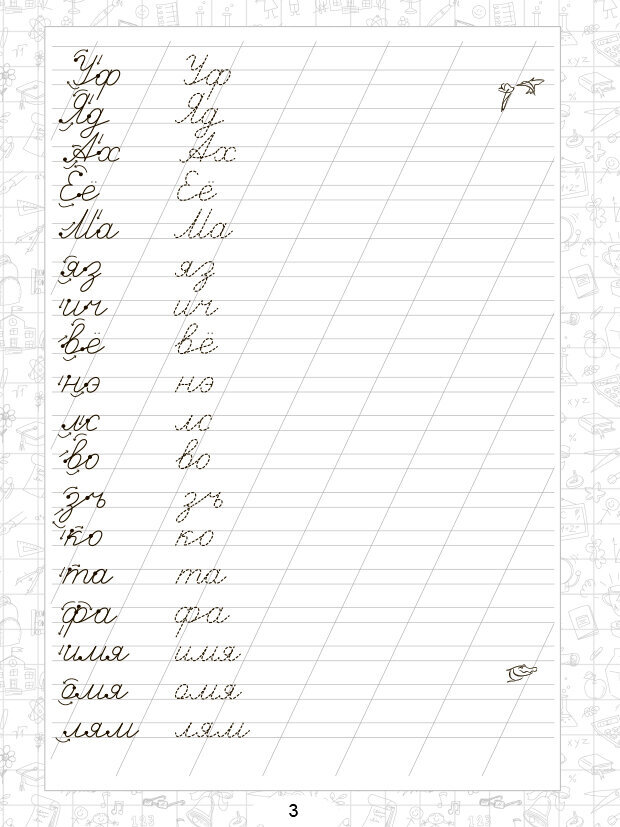 Уф Уф
Яд Яд
Ах Ах
Её Её
Ма Ма
яз яз
ич ич
вё вё
нэ нэ
лс ло
во во
зъ зъ
ко ко
та та
фа фа
имя имя
омя омя
лям лям
3